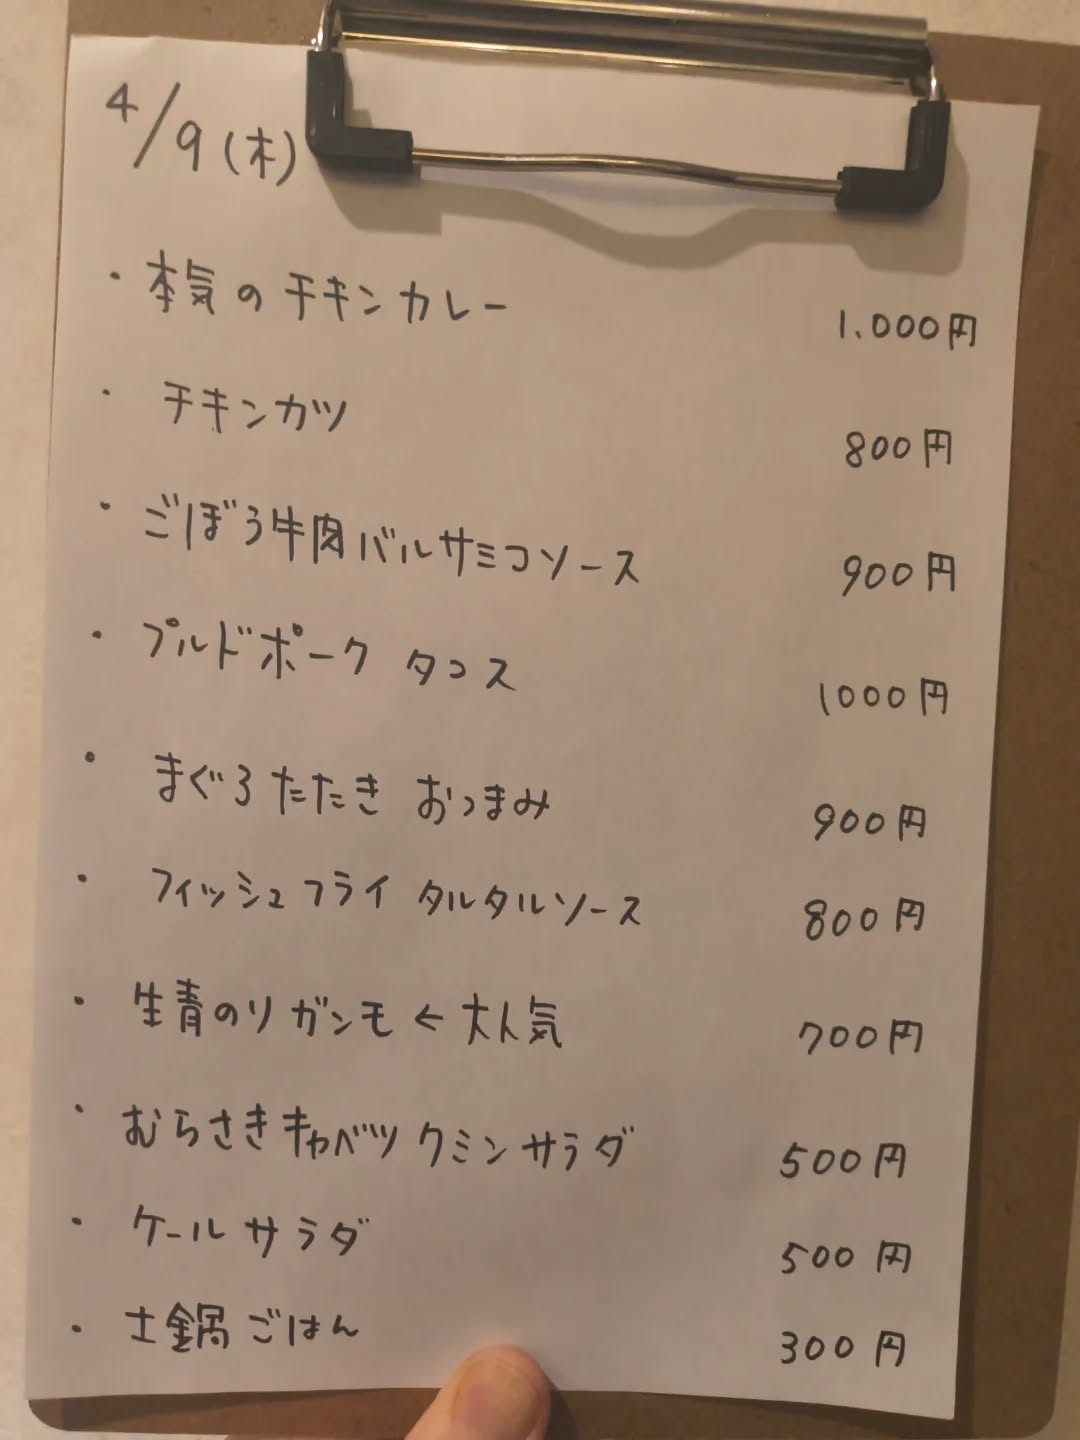 4/9(木)
・本気のチキンカレー 1.000円
・チキンカツ 800円
・ごぼう牛肉バルサミコソース 900円
・プルドポーク タコス 1000円
・まぐろたたき おつまみ 900円
・フィッシュフライ タルタルソース 800円
・生青のりガンモ←大人気 700円
・むらさきキャベツクミンサラダ 500円
・ケールサラダ 500円
・土鍋ごはん 300円